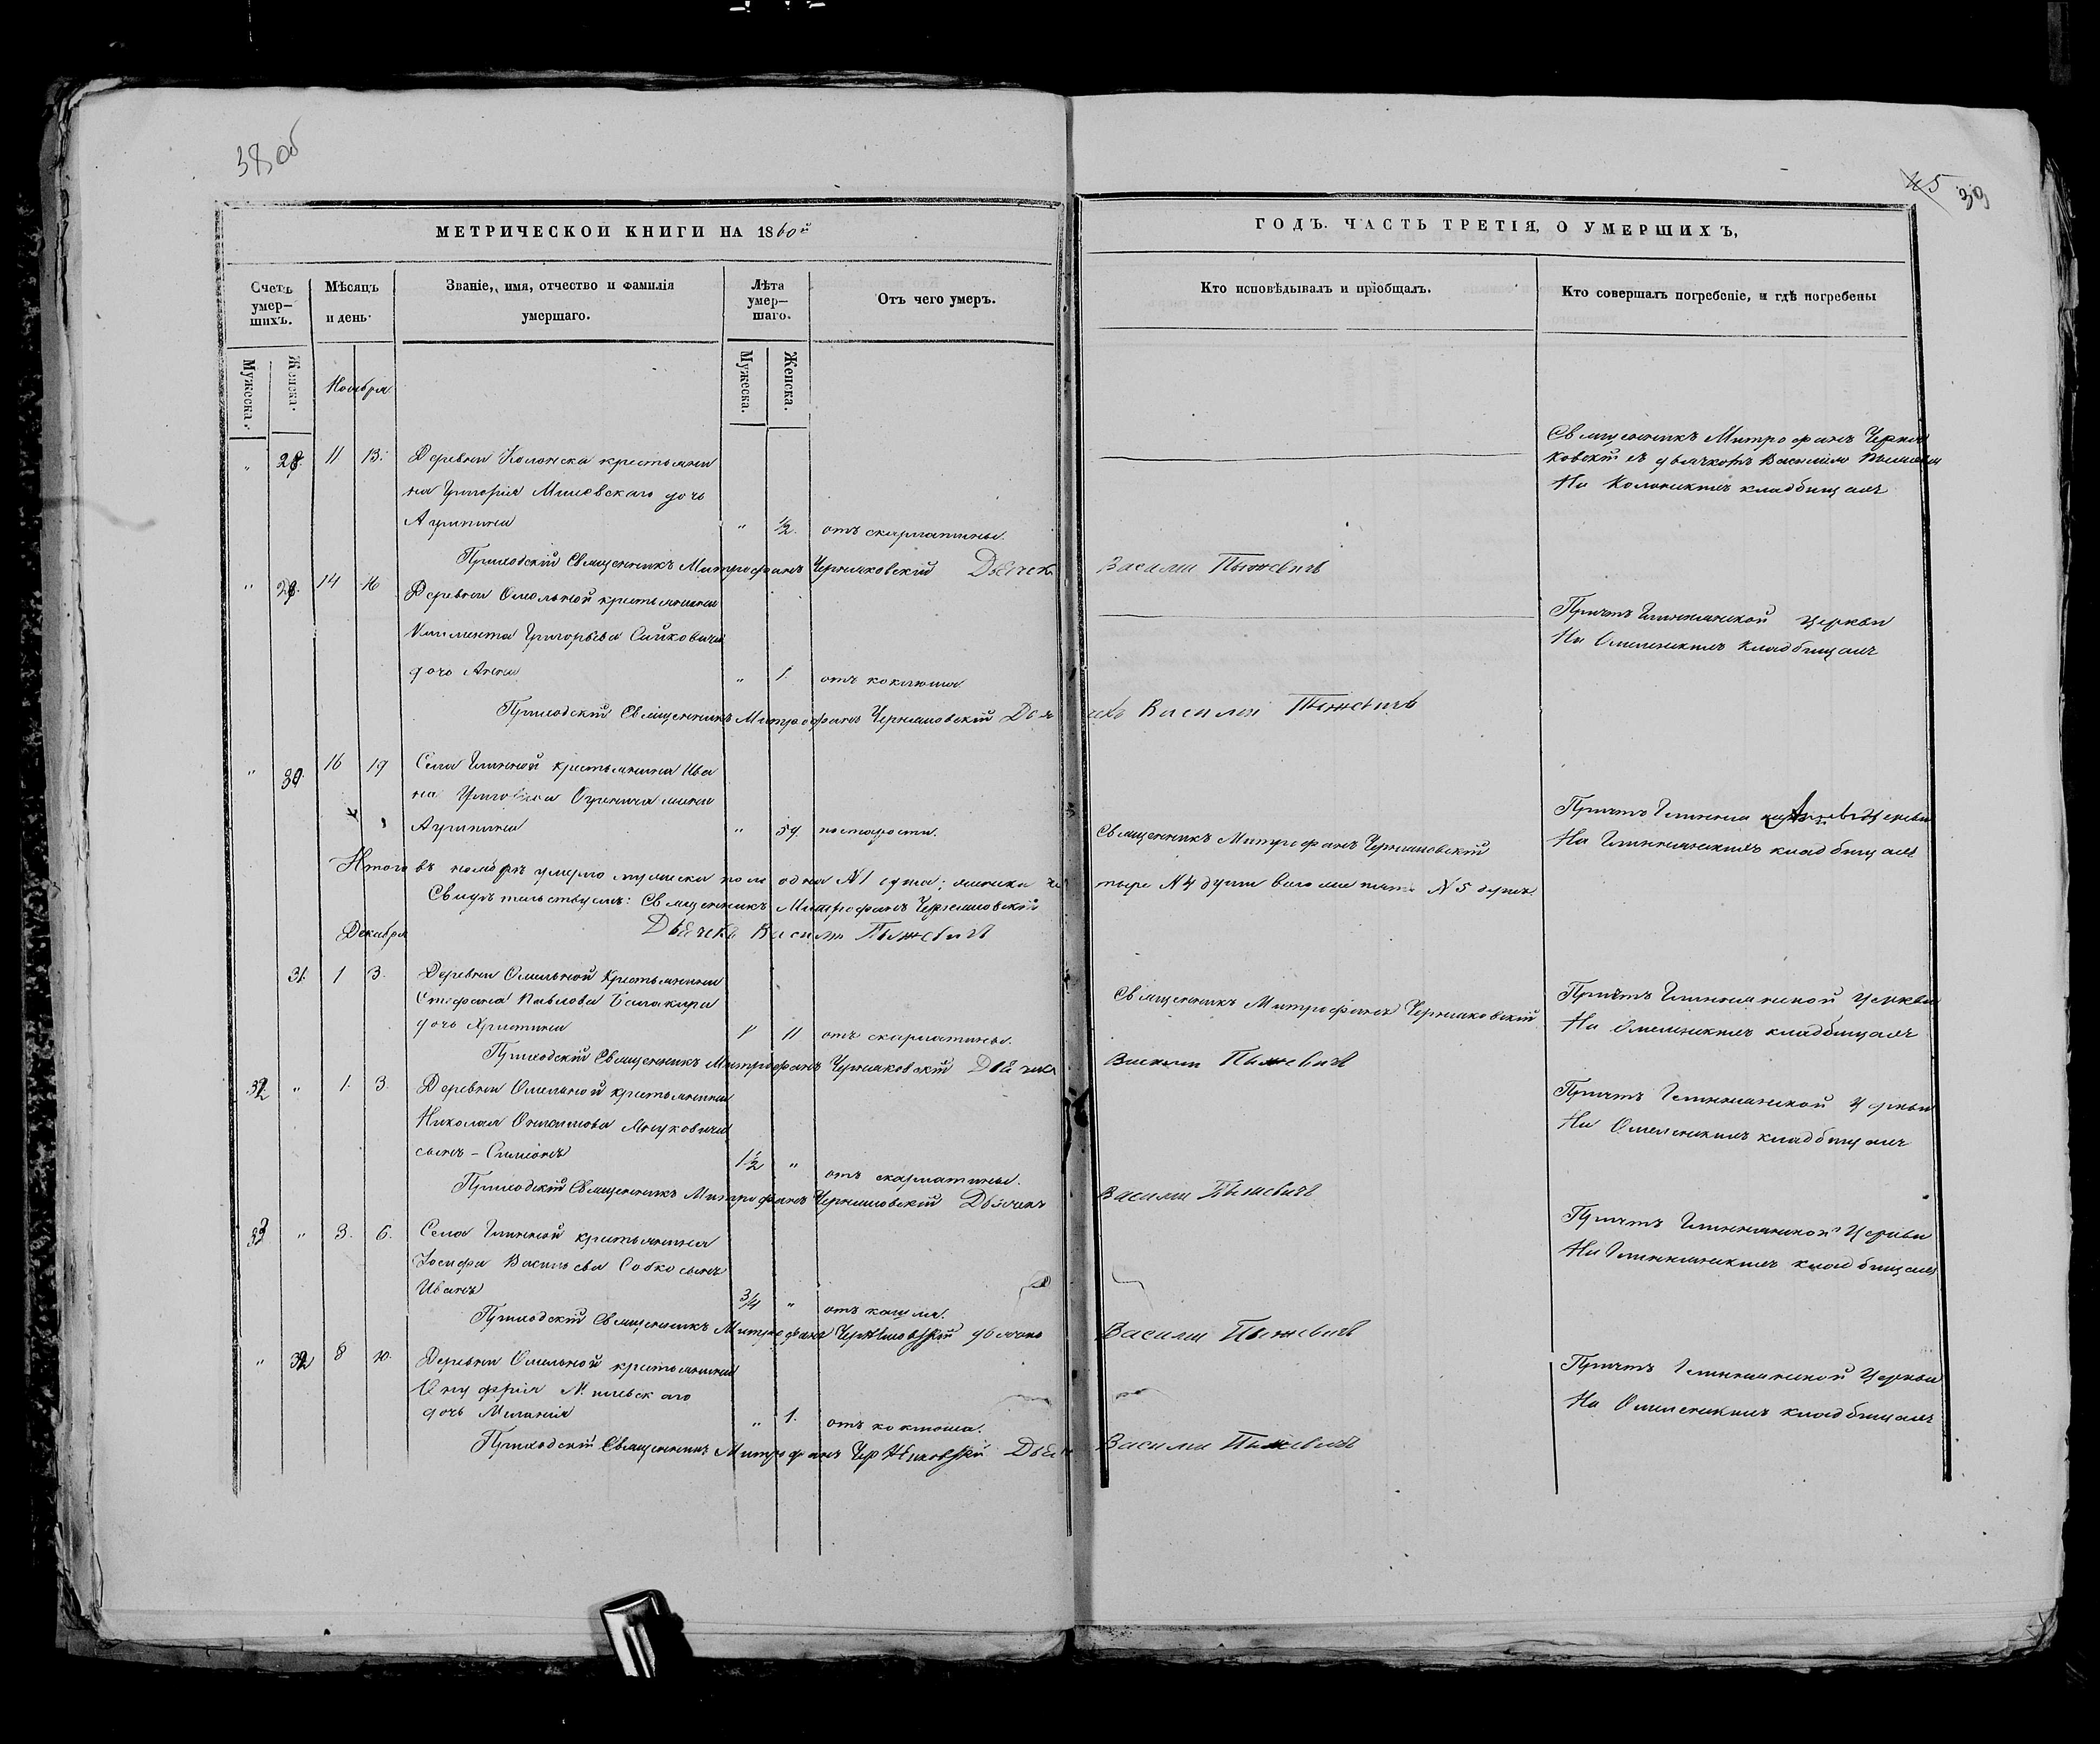 38 об
45 39
МЕТРИЧЕСКОЙ КНИГИ НА 1860й
ГОДЪ. ЧАСТЬ ТРЕТІЯ, О УМЕРШИХЪ,
Счетъ умер-
шихъ.
Мѣсяцъ
и день.
Званіе, имя, отчество и фамилія
умершаго.
Лѣта
умер-
шаго.
Отъ чего умеръ.
Кто исповѣдывалъ и пріобщалъ.
Кто совершалъ погребеніе, и гдѣ погребены
Мужеска.
Женска.
Мужеска.
Женска.
Ноября
" 28. 11 13. Деревни Колонска крестьяни
на Григорія Милевскаго дочь
Агрипина " ½. отъ скарлатины.
Священникъ Митрофанъ Черня
ковскій съ дьячкомъ Василіемъ
На Колонскихъ кладбищахъ
Приходскій Священникъ Митрофанъ Черняковскій Дьячекъ Василій Пыжевичъ
" 29. 14 16 Деревни Омельной крестьянина
Климента Григорьева Сайковича
дочь Анна " 1. отъ коклюша.
Причтъ Глиннянской Церкви
На Омеленскихъ кладбищахъ
Приходскій Священникъ Митрофанъ Черняховскій Дьячекъ Василій Пыжевичъ
" 30. 16 19 Села Глинной крестьянина Ива
на жена
Агрипина " 59. по старости.
Священникъ Митрофанъ Черняховскій
Причтъ Церкви
На Глиннянскихъ кладбищахъ
Итого въ ноябрѣ умерло мужеска пола одна № 1 душа; женска че тыре № 4 души всего же пять № 5 душъ.
Свидѣтельствуемъ: Священникъ Митрофанъ Черняховскій
Дьячекъ Василій Пыжевичъ
Декабря
31. 1 3. Деревни Омельной Крестьянина
Стефана Павлова Балакира
дочь Христина " 11 отъ скарлатины.
Священникъ Митрофанъ Черняховскій
Причтъ Глиннянской Церкви
На Омеленскихъ кладбищахъ
Приходскій Священникъ Митрофанъ Черняховскій Дьячекъ Василій Пыжевичъ
32 " 1. 3. Деревни Омельной крестьянина
Николая
сынъ - Симеонъ 1½ " отъ скарлатины.
Причтъ Глиннянской Церкви
На Омеленскихъ кладбищахъ
Приходскій Священникъ Митрофанъ Черняховскій Дьячекъ Василій Пыжевичъ
33 " 3. 6. Села Глинной крестьянина
Іосифа Васильева Собко сынъ
Иванъ ¾ " отъ кашля.
Причтъ Глиннянской Церкви
На Глиннянскихъ кладбищахъ
Приходскій Священникъ Митрофанъ Черняховскій дьячекъ Василій Пыжевичъ
" 32 8 10. Деревни Омельной крестьянина
Онуфрія Милевскаго
дочь Меланія " 1. отъ коклюша.
Причтъ Глиннянской Церкви
На Омеленскихъ кладбищахъ
Приходскій Священникъ Митрофанъ Черняховскій Дьячекъ Василій Пыжевичъ